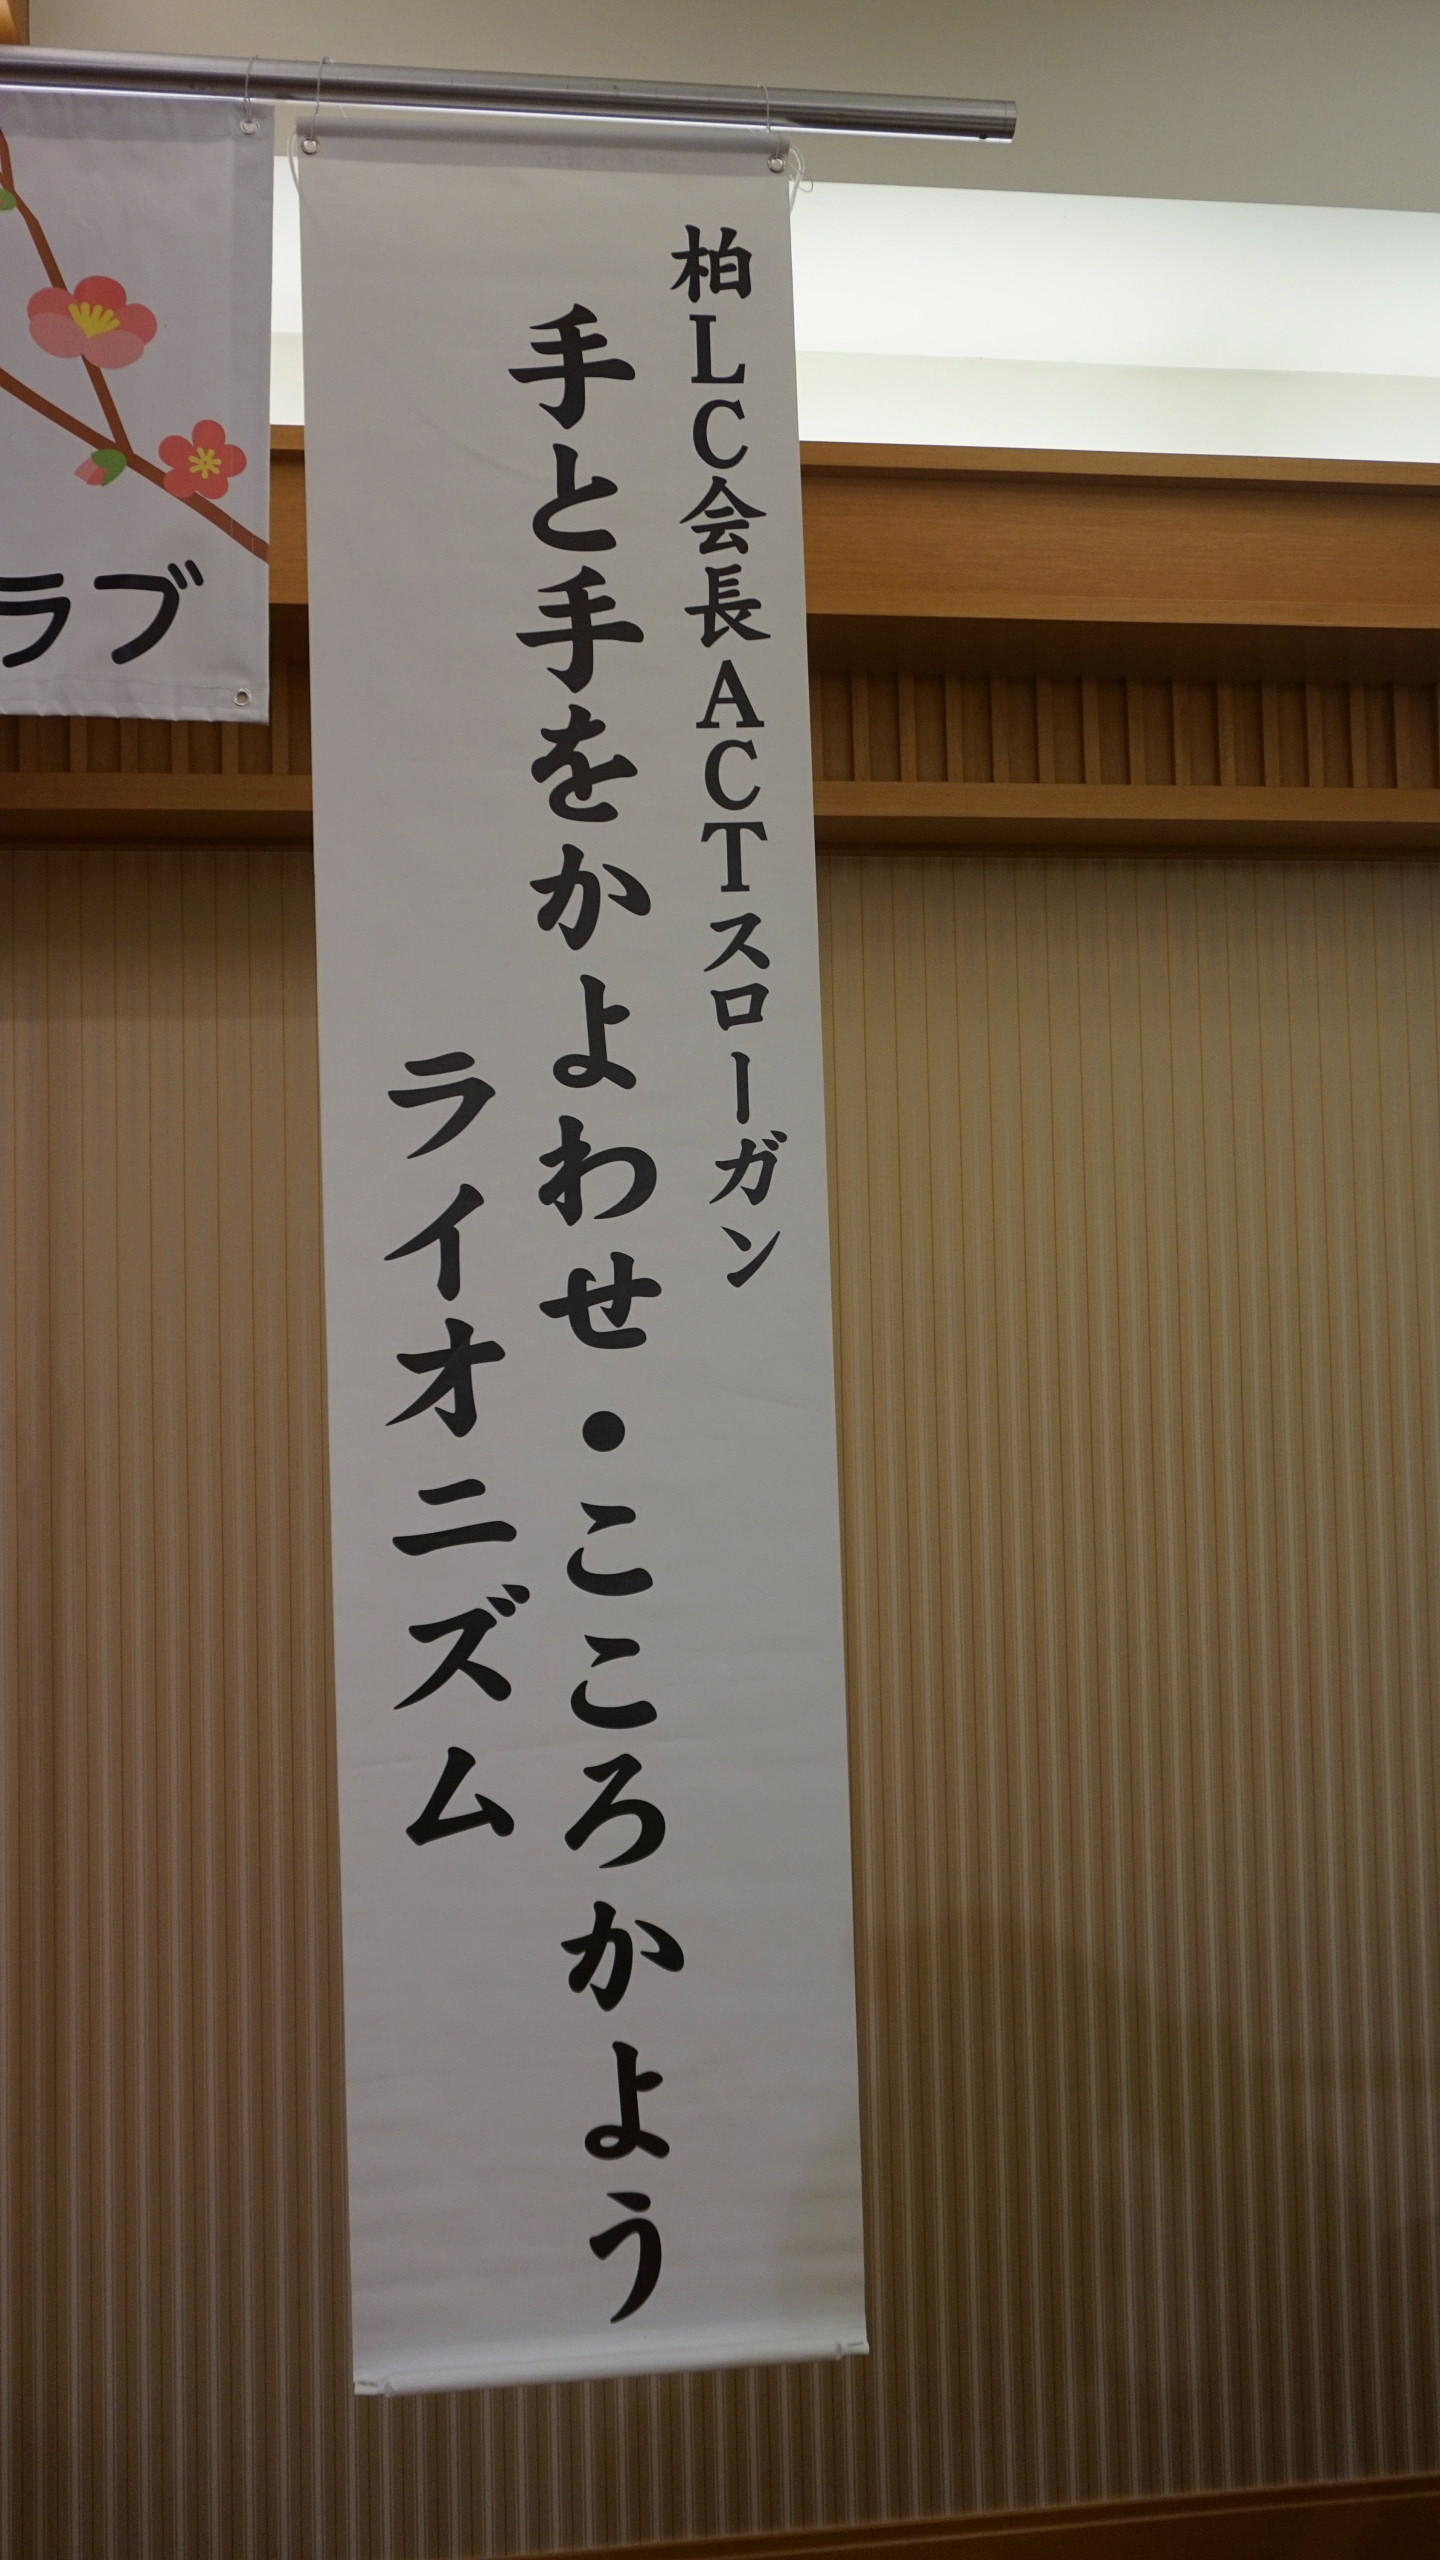 柏LC会長ACTスローガン
手と手をかよわせ・こころかよう
ライオニズム
ラブ